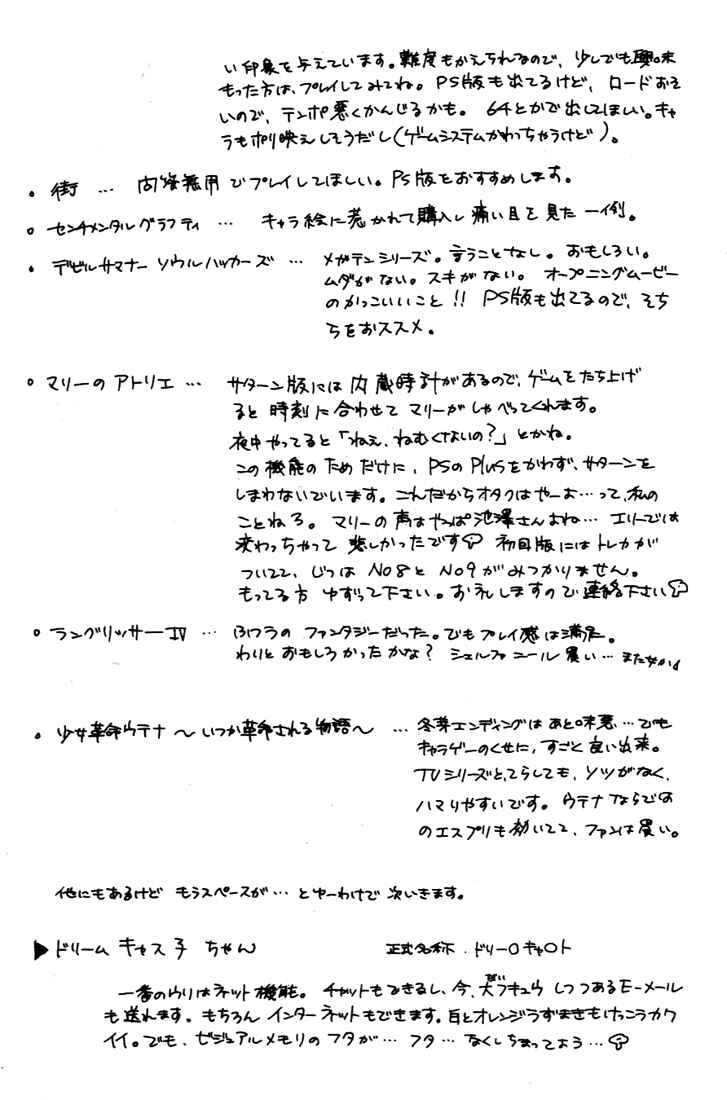 い印象を与えています。難度もかえられるので、少しでも興味
もった方は、プレイしてみてね。PS版も出てるけど、ロードおそ
いので、テンポ悪くかんじるかも。64とかで出してほしい。キャ
ラもポリ映えしそうだし(ゲームシステムかわっちゃうけど)。
・街 … 問答無用でプレイしてほしい。PS版をおすすめします。
・センチメンタルグラフティ … キャラ絵に惹かれて購入し痛い目を見た一例。
・デビルサマナー ソウルハッカーズ … メガテンシリーズ。言うことなし。おもしろい。
ムダがない。スキがない。オープニングムービー
のかっこいいこと!! PS版も出てるので、そち
らをおススメ。
・マリーのアトリエ … サターン版には内蔵時計があるので、ゲームをたち上げ
ると時刻に合わせてマリーがしゃべってくれます。
夜中やってると「ねえ、ねむくないの?」とかね。
この機能のためだけに、PSのPlusをかわず、サターンを
しまわないでいます。これだからオタクはやーよ…って、私の
ことねろ。マリーの声はやっぱ池澤さんよね… エリーでは
変わっちゃって悲しかったです 初回版にはトレカが
ついてて、じつはNo8とNo9がみつかりません。
もってる方ゆずって下さい。お礼しますので連絡下さい
・ラングリッサーIV … ふつうのファンタジーだった。でもプレイ感は満足。
わりとおもしろかったかな? シェルファニール買い…
・少女革命ウテナ 〜いつか革命される物語〜 … 冬芽エンディングはあと味悪…でも
キャラゲーのくせに、すごく良い出来。
TVシリーズとてらしても、ソツがなく、
ハマりやすいです。ウテナならでは
のエスプリも効いてて、ファンは買い。
他にもあるけど もうスペースが… とゆーわけで 次いきます。
▶ドリーム キャス子 ちゃん 正式名称・ドリー○キャ○ト
一番のウリはネット機能。チャットもできるし、今、大ブキュウしつつあるE-メール
も送れます。もちろんインターネットもできます。白とオレンジうずまきもけっこうカワ
イイ。でも、ビジュアルメモリのフタが… フタ… なくしちまってよう…